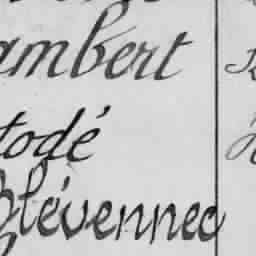 ambert
todé
Glévennec